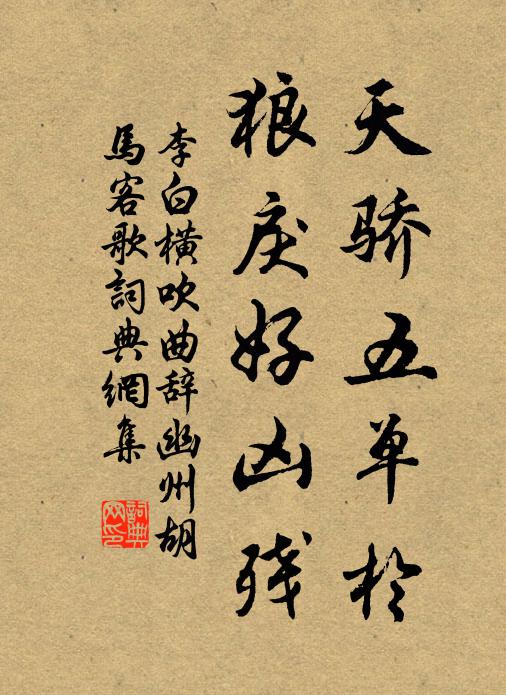 天骄五单於
狼戾好凶残
李白横吹曲辞幽州胡
馬客歌詞典網集
詞典網印